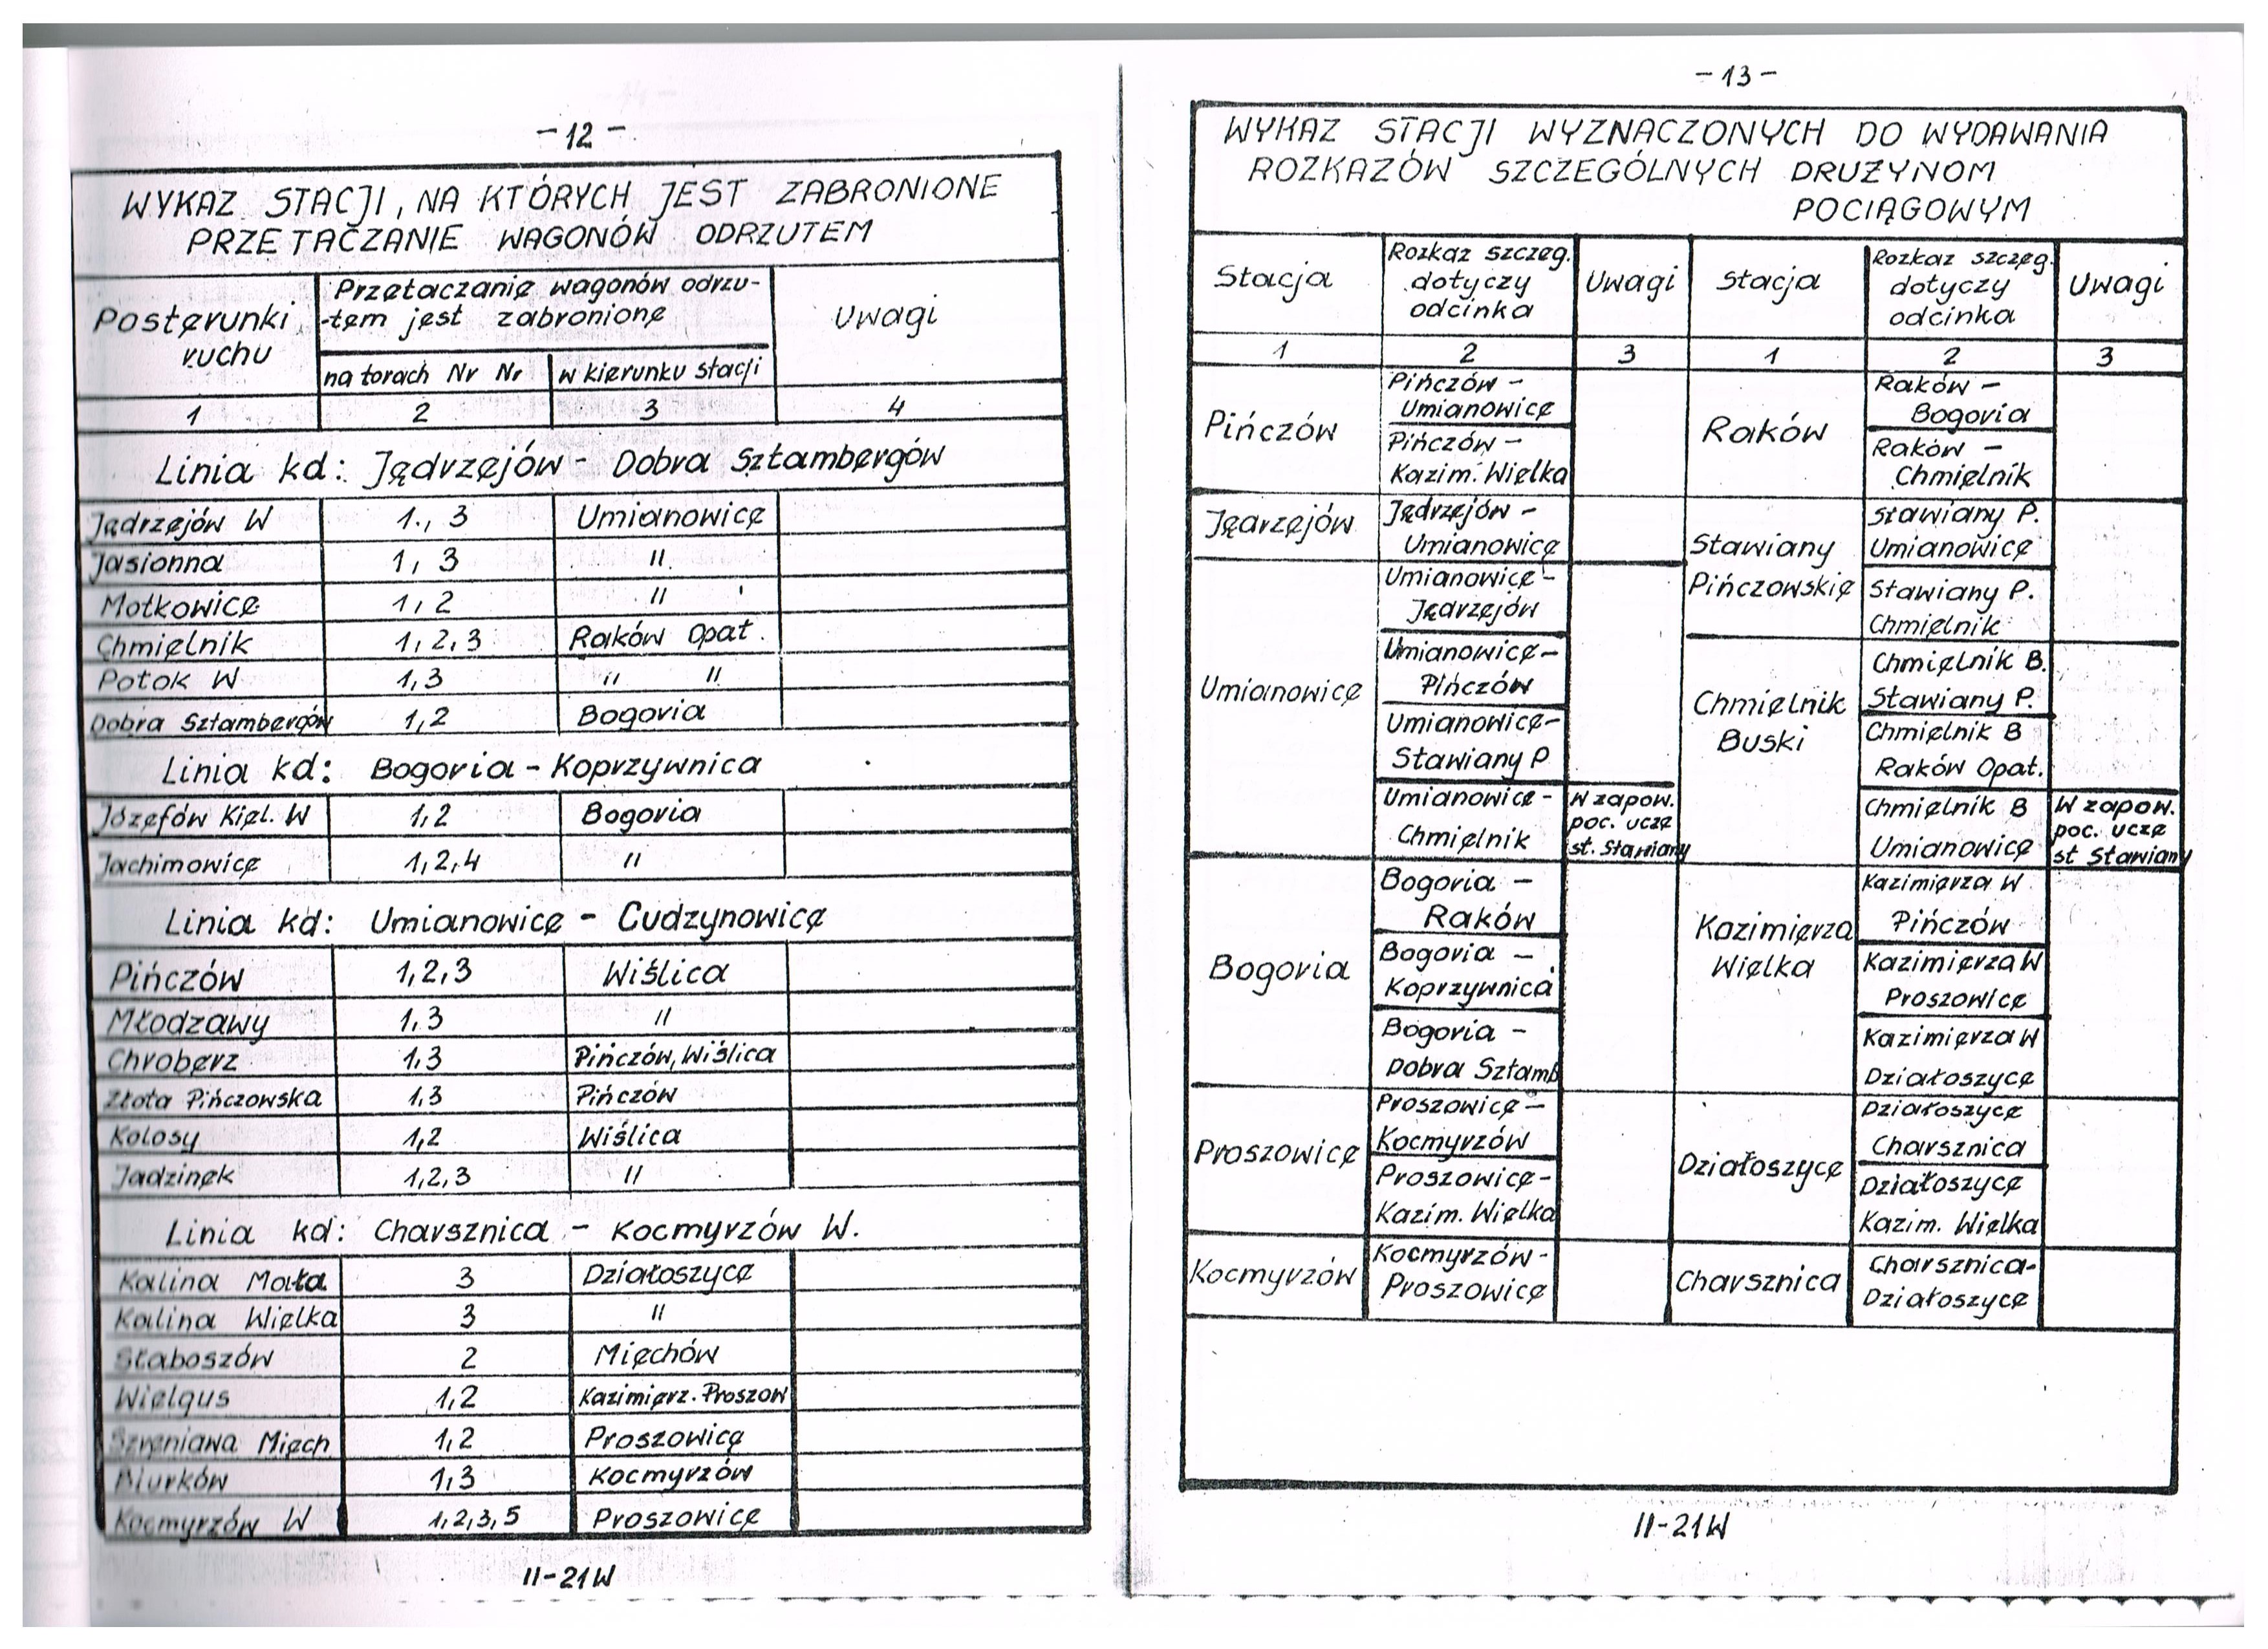 - 12 -
WYKAZ STACJI, NA KTÓRYCH JEST ZABRONIONE
PRZETACZANIE WAGONÓW ODRZUTEM
Posterunki ruchu
Przetaczanie wagonów odrzu-
-tem jest zabronione
Uwagi
na torach Nr Nr
w kierunku stacji
1 2 3 4
Linia kd: Jędrzejów - Dobra Sztambergów
Jędrzejów W 1., 3 Umianowice
Jasionna 1, 3 "
Motkowice 1, 2 "
Chmielnik 1, 2, 3 Raków Opat.
Potok W 1,3 " "
Dobra Sztambergów 1,2 Bogoria
Linia kd: Bogoria - Koprzywnica
Józefów Kiel. W 1,2 Bogoria
Jachimowice 1,2,4 "
Linia kd: Umianowice - Cudzynowice
Pińczów 1,2,3 Wiślica
Młodzawy 1,3 "
Chroberz 1,3 Pińczów, Wiślica
Złota Pińczowska 1,3 Pińczów
Kolosy 1,2 Wiślica
Jadzinek 1,2,3 "
Linia kd: Charsznica - Kocmyrzów W.
Kalina Mała 3 Działoszyce
Kalina Wielka 3 "
Słaboszów 2 Miechów
Wielgus 1,2 Kazimierz. Proszow
Szreniawa Miech 1,2 Proszowice
Piurków 1,3 Kocmyrzów
Kocmyrzów W 1,2,3,5 Proszowice
II-21W
- 13 -
WYKAZ STACJI WYZNACZONYCH DO WYDAWANIA
ROZKAZÓW SZCZEGÓLNYCH DRUŻYNOM
POCIĄGOWYM
Stacja
Rozkaz szczeg.
dotyczy
odcinka
Uwagi
Stacja
Rozkaz szczeg.
dotyczy
odcinka
Uwagi
1 2 3 1 2 3
Pińczów
Pińczów -
Umianowice
Pińczów -
Kazim. Wielka
Jędrzejów
Jędrzejów -
Umianowice
Umianowice
Umianowice -
Jędrzejów
Umianowice -
Pińczów
Umianowice -
Stawiany P
Umianowice -
Chmielnik
W zapow.
poc. ucze
st. Stawiany
Bogoria
Bogoria -
Raków
Bogoria -
Koprzywnica
Bogoria -
Dobra Sztamb
Proszowice
Proszowice -
Kocmyrzów
Proszowice -
Kazim. Wielka
Kocmyrzów
Kocmyrzów -
Proszowice
Raków
Raków -
Bogoria
Raków -
Chmielnik
Stawiany
Pińczowskie
Stawiany P.
Umianowice
Stawiany P.
Chmielnik
Chmielnik
Buski
Chmielnik B.
Stawiany P.
Chmielnik B
Raków Opat.
Chmielnik B
Umianowice
W zapow.
poc. ucze
st Stawiany
Kazimierza
Wielka
Kazimierza W
Pińczów
Kazimierza W
Proszowice
Kazimierza W
Działoszyce
Działoszyce
Działoszyce
Charsznica
Działoszyce
Kazim. Wielka
Charsznica
Charsznica-
Działoszyce
II-21W